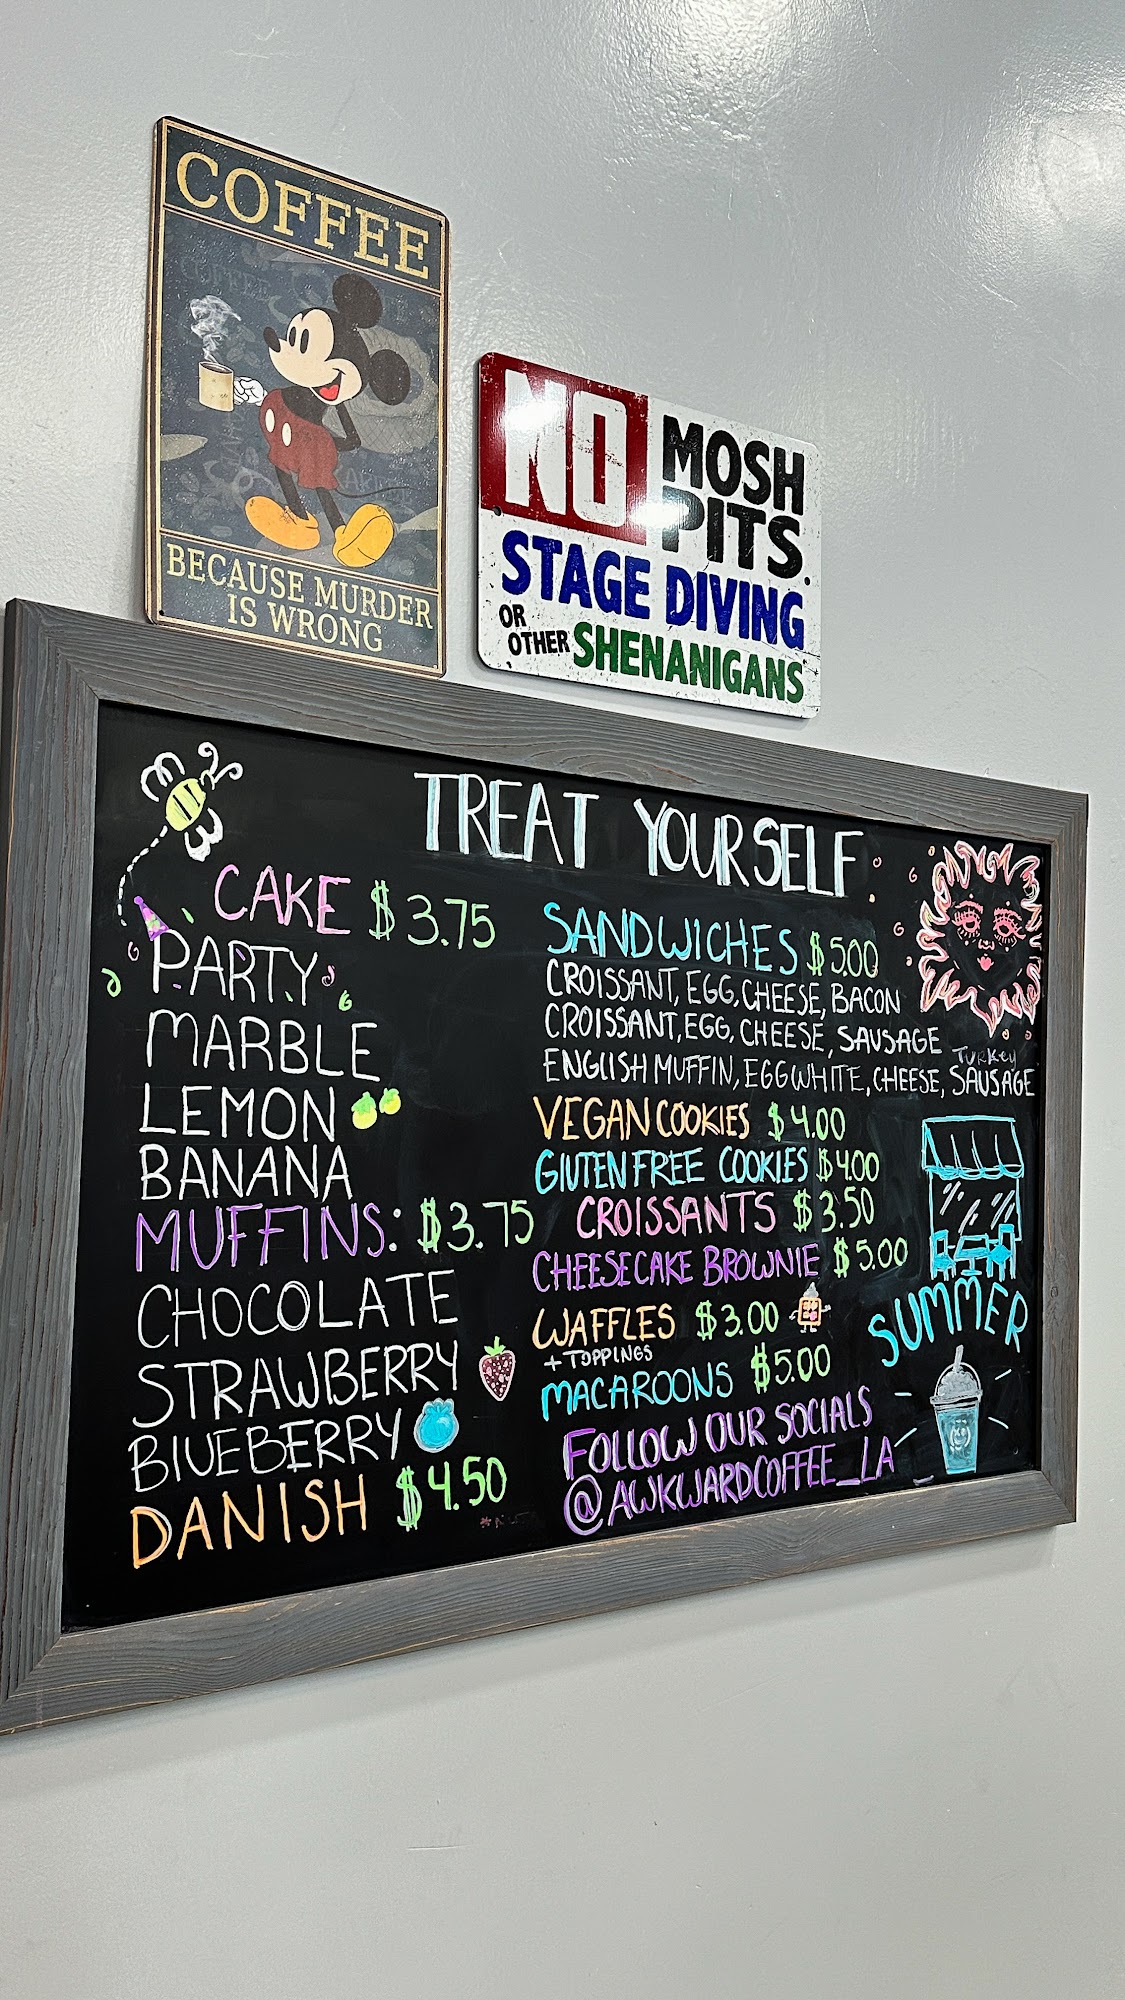 COFFEE
BECAUSE MURDER
IS WRONG
NO MOSH
PITS
STAGE DIVING
OR
OTHER SHENANIGANS
TREAT YOURSELF
CAKE $3.75
PARTY
MARBLE
LEMON
BANANA
MUFFINS: $3.75
CHOCOLATE
STRAWBERRY
BLUEBERRY
DANISH $4.50
SANDWICHES $5.00
CROISSANT, EGG, CHEESE, BACON
CROISSANT, EGG, CHEESE, SAUSAGE
TURKEY
ENGLISH MUFFIN, EGG WHITE, CHEESE, SAUSAGE
VEGAN COOKIES $4.00
GLUTEN FREE COOKIES $4.00
CROISSANTS $3.50
CHEESECAKE BROWNIE $5.00
WAFFLES $3.00
+ TOPPINGS
MACAROONS $5.00
FOLLOW OUR SOCIALS
@AWKWARDCOFFEE_LA_
SUMMER